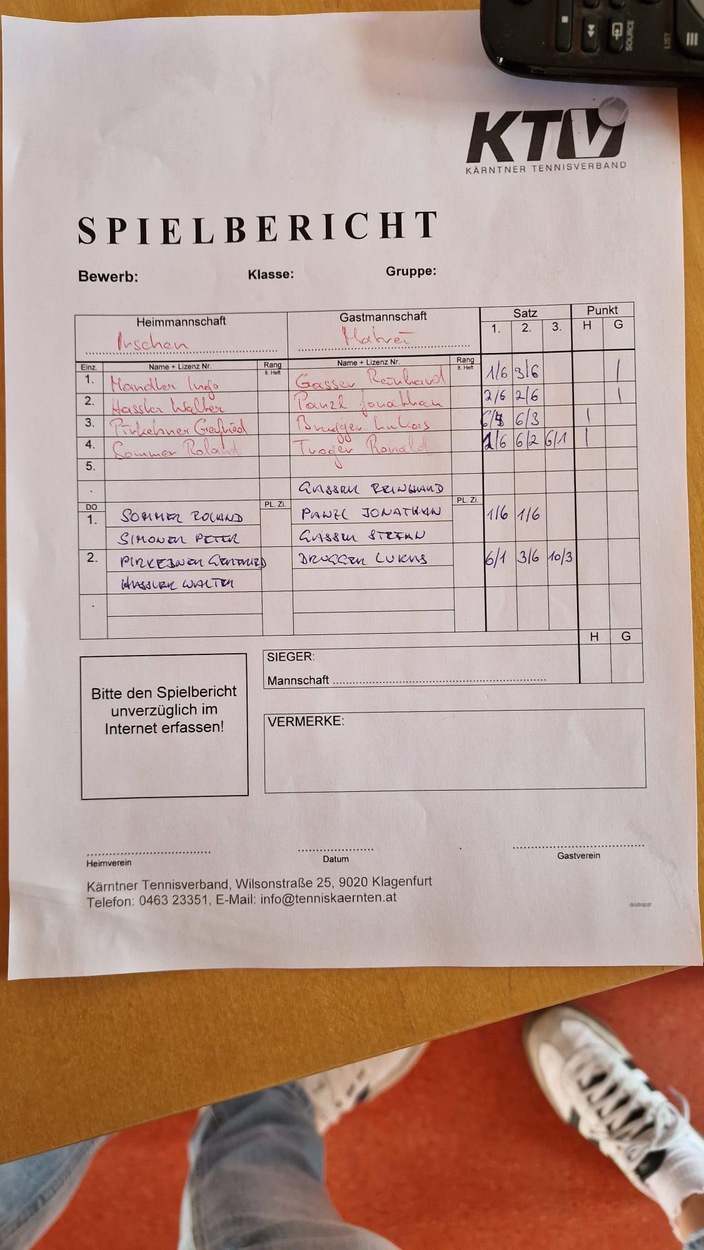 SOURCE
LIST
KTV
KÄRNTNER TENNISVERBAND
SPIELBERICHT
Bewerb: Klasse: Gruppe:
Heimmannschaft Gastmannschaft Satz Punkt
Irschen Matrei 1. 2. 3. H G
Einz. Name + Lizenz Nr. Rang Name + Lizenz Nr. Rang
1. Mandler Ingo Gasser Reinhard 1/6 3/6 |
2. Hassler Walter Panzl Jonathan 2/6 2/6 |
3. Pirkebner Gottfried Brugger Lukas 6/3 |
4. Sommer Roland Troger Ronald 1/6 6/2 6/1 |
5.
GASSER REINHARD
DO PL. Zi. PL. Zi.
1. SOMMER ROLAND PANZL JONATHAN 1/6 1/6
SIMONER PETER GASSER STEFAN
2. PIRKEBNER BRUGGER LUKAS 6/1 3/6 10/3
HASSLER WALTER
H G
SIEGER:
Mannschaft
Bitte den Spielbericht
unverzüglich im
Internet erfassen!
VERMERKE:
Heimverein Datum Gastverein
Kärntner Tennisverband, Wilsonstraße 25, 9020 Klagenfurt
Telefon: 0463 23351, E-Mail: info@tenniskaernten.at